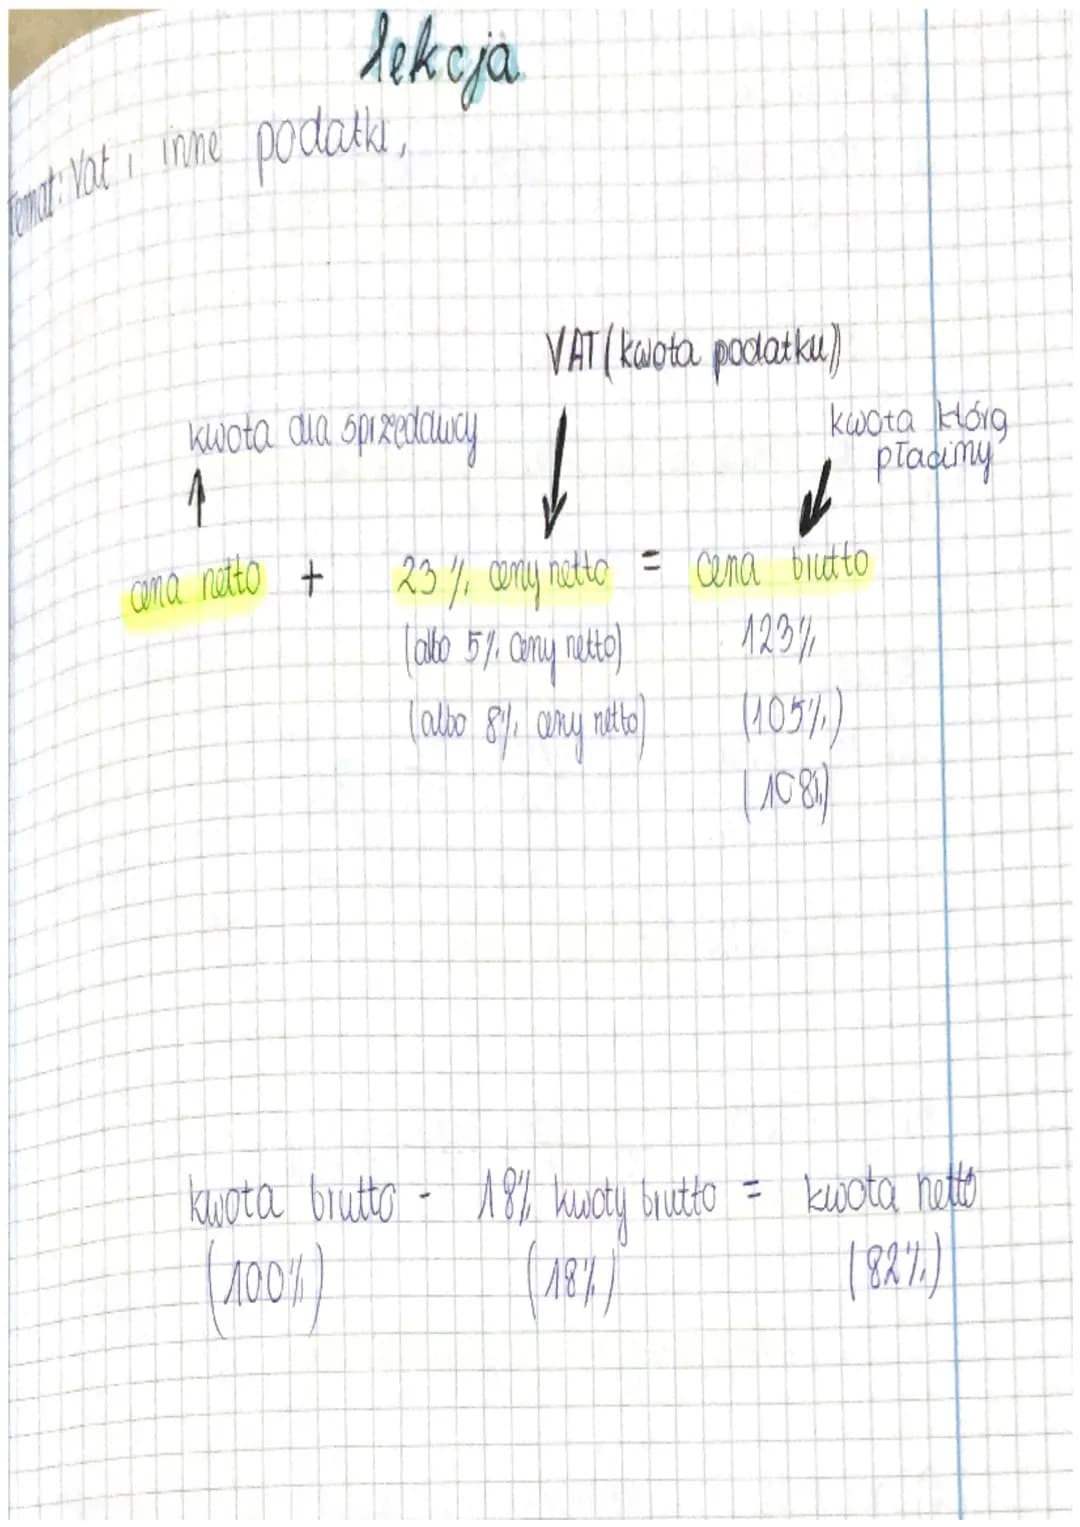 lekcja
Temat: Vat i inne podatki,
VAT (kwota podatku)
kwota dla sprzedawcy
kwota którą
płacimy
cena netto + 23% ceny netto = cena brutto
(albo 5% ceny netto) 123%
(albo 8% ceny netto) (105%)
(108%)
kwota brutto - 18% kwoty brutto = kwota netto
(100%) (18%) (82%)